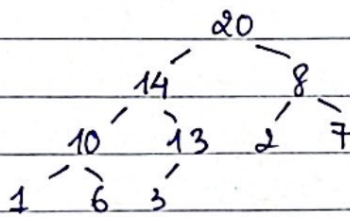 20
14 8
10 13 2 7
1 6 3